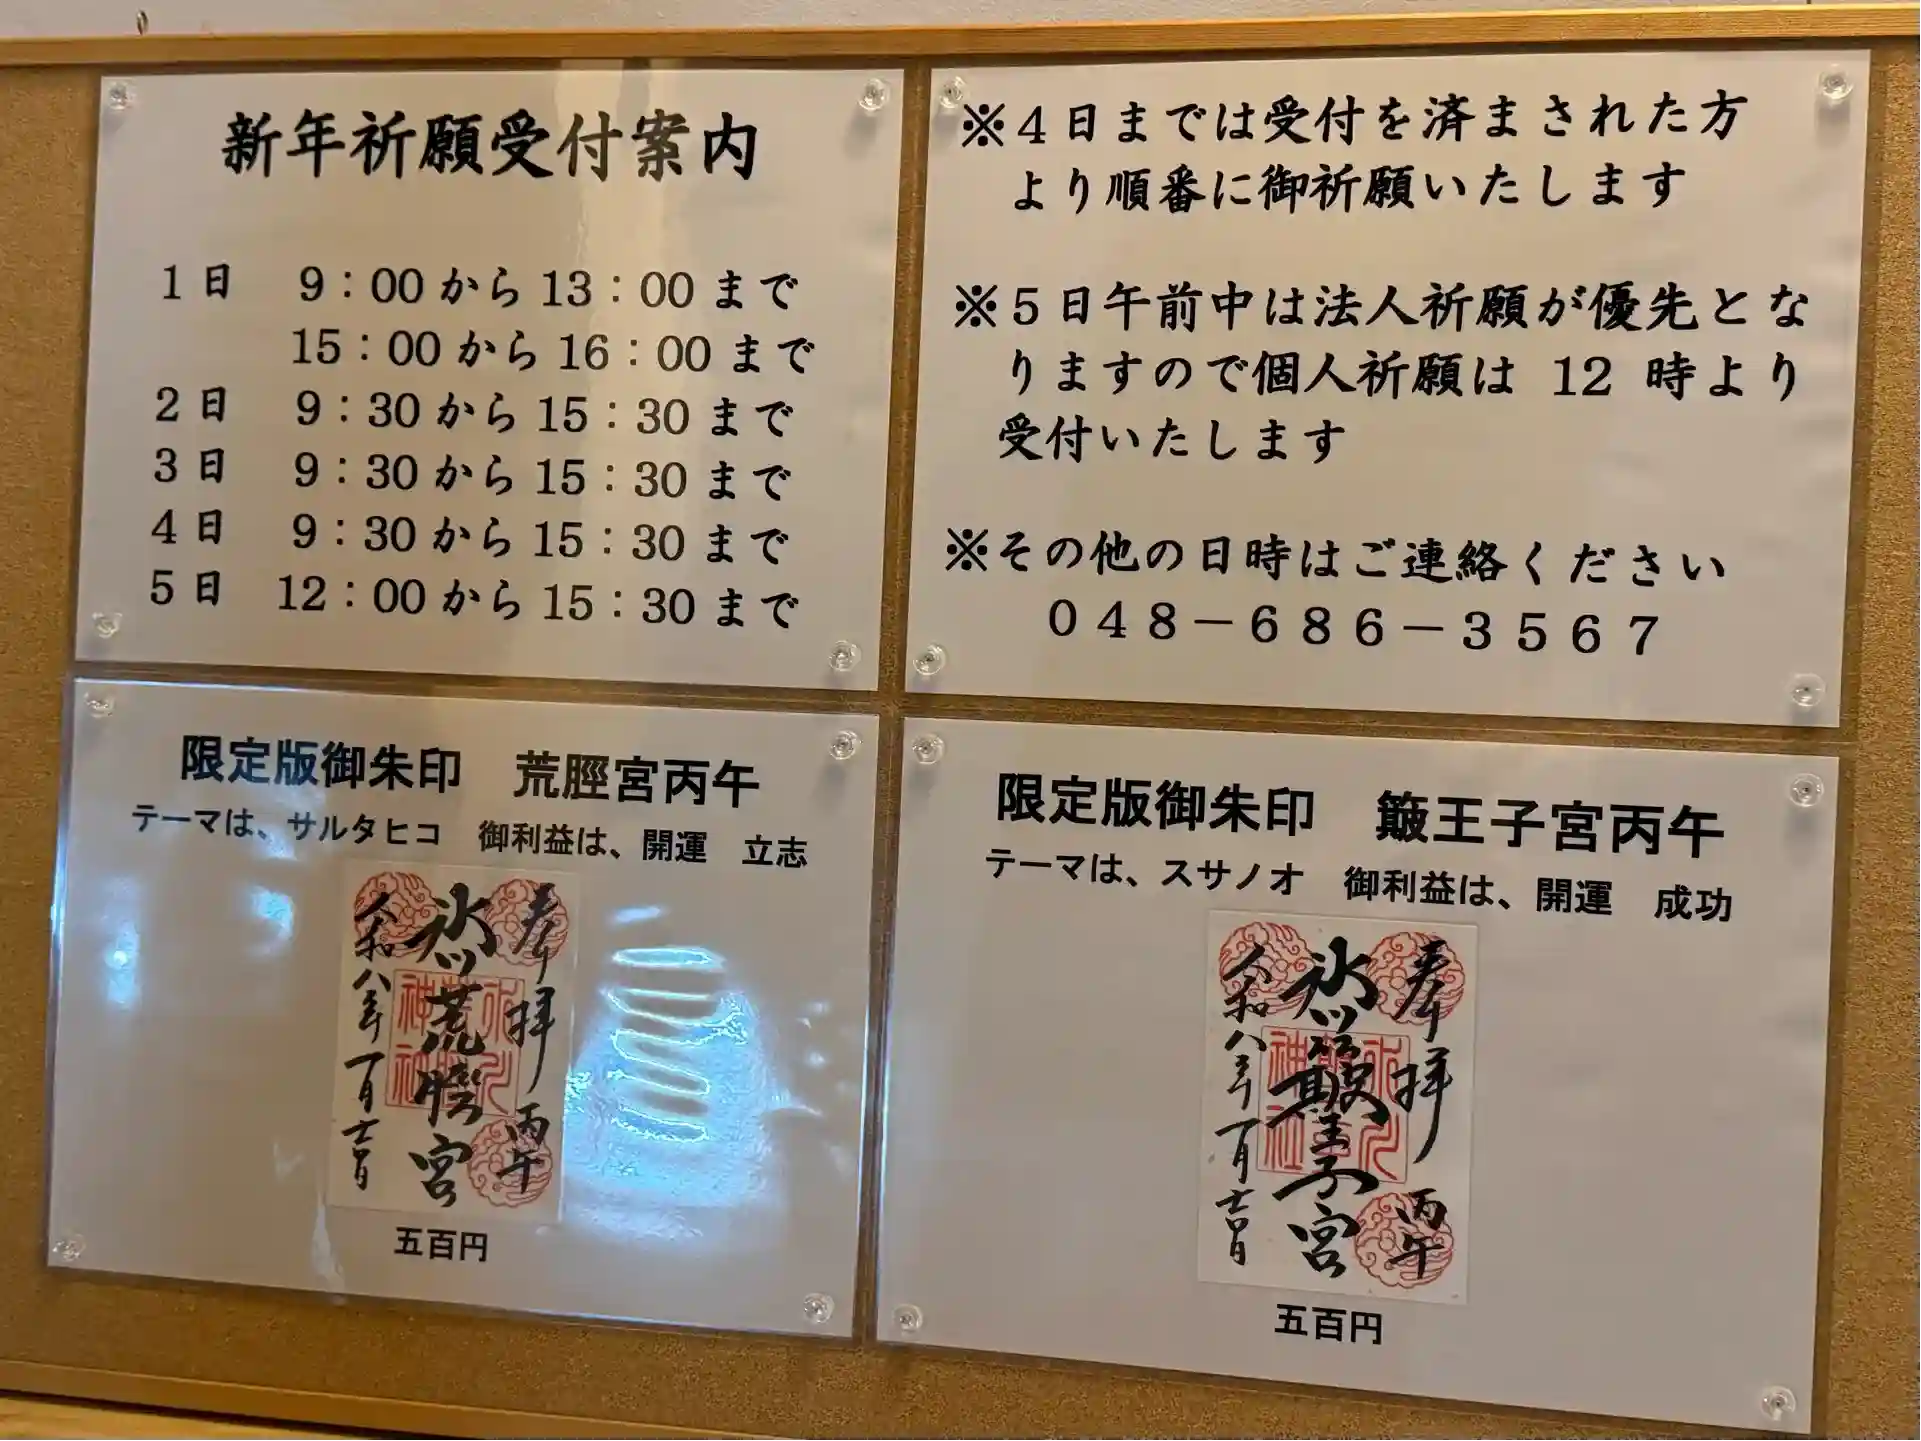 新年祈願受付案内
1日 9：00から13：00まで
15：00から16：00まで
2日 9：30から15：30まで
3日 9：30から15：30まで
4日 9：30から15：30まで
5日 12：00から15：30まで
※4日までは受付を済まされた方
より順番に御祈願いたします
※5日午前中は法人祈願が優先とな
りますので個人祈願は 12 時より
受付いたします
※その他の日時はご連絡ください
０４８－６８６－３５６７
限定版御朱印 荒脛宮丙午
テーマは、サルタヒコ 御利益は、開運 立志
奉拝 丙午
氷川荒脛宮
令和八年一月
五百円
限定版御朱印 簸王子宮丙午
テーマは、スサノオ 御利益は、開運 成功
奉拝 丙午
氷川簸王子宮
令和八年一月
五百円